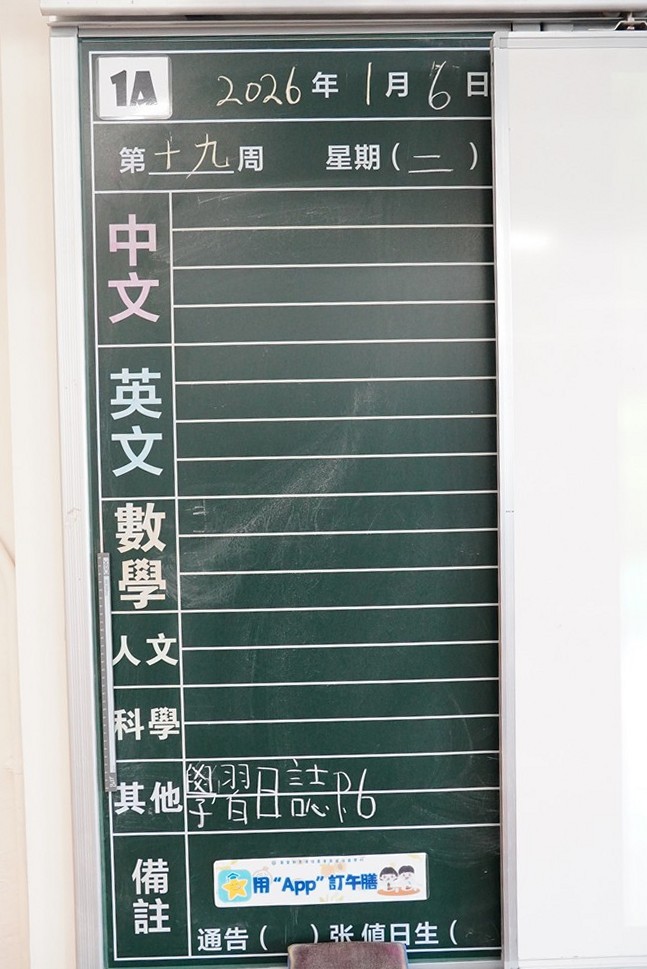 1A 2026年1月6日
第十九周 星期(二)
中文
英文
數學
人文
科學
其他 學習日誌P.6
備註
用“App”訂午膳
通告( )张 值日生(